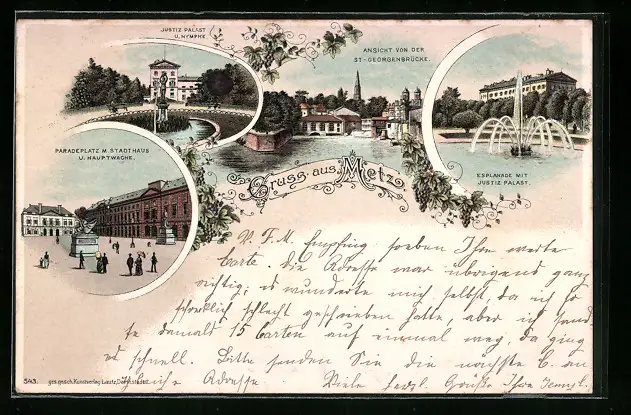 JUSTIZ PALAST
U. NYMPHE
ANSICHT VON DER
ST-GEORGENBRÜCKE.
PARADEPLATZ M. STADTHAUS
U. HAUPTWACHE.
ESPLANADE MIT
JUSTIZ PALAST.
Gruss aus Metz
P. F. M. Empfing soeben Ihre werte
Carte die Adresse war übrigens ganz
richtig; es wunderte mich selbst, da ich so
schrecklich schlecht geschrieben hatte, aber ich sand
te damals 15 Carten auf einmal weg, da ging
es schnell. Bitte senden Sie die nächste C. an
Adresse. Viele herzl. Grüße Ihre
543. ges. gesch. Kunstverlag Lautz, Darmstadt